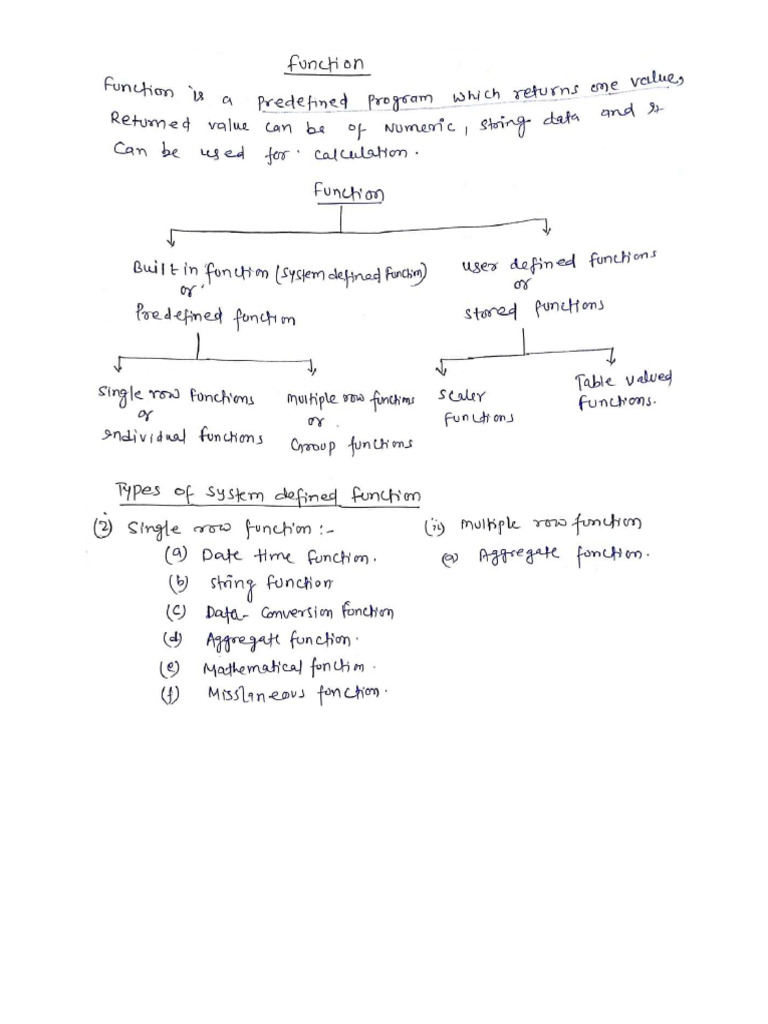 Function
Function is a Predefined Program which returns one value,
Returned value can be of Numeric, String data and
Can be used for calculation.
Function
Built in function (System defined Function)
or
Predefined function
User defined functions
or
Stored functions
Single row functions
or
individual functions
Multiple row functions
or
Group functions
Scaler
Functions
Table valued
Functions.
Types of System defined function
(i) Single row function :-
(a) Date time function.
(b) String function
(c) Data- Conversion function
(d) Aggregate function.
(e) Mathematical function.
(f) Misslaneous function.
(ii) Multiple row function
(a) Aggregate function.